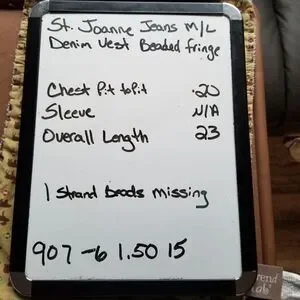 St. Joanne Jeans M/L
Denim Vest Beaded fringe
Chest Pit to Pit .20
Sleeve N/A
Overall Length 23
1 Strand beads missing
907 -6 1.50 15